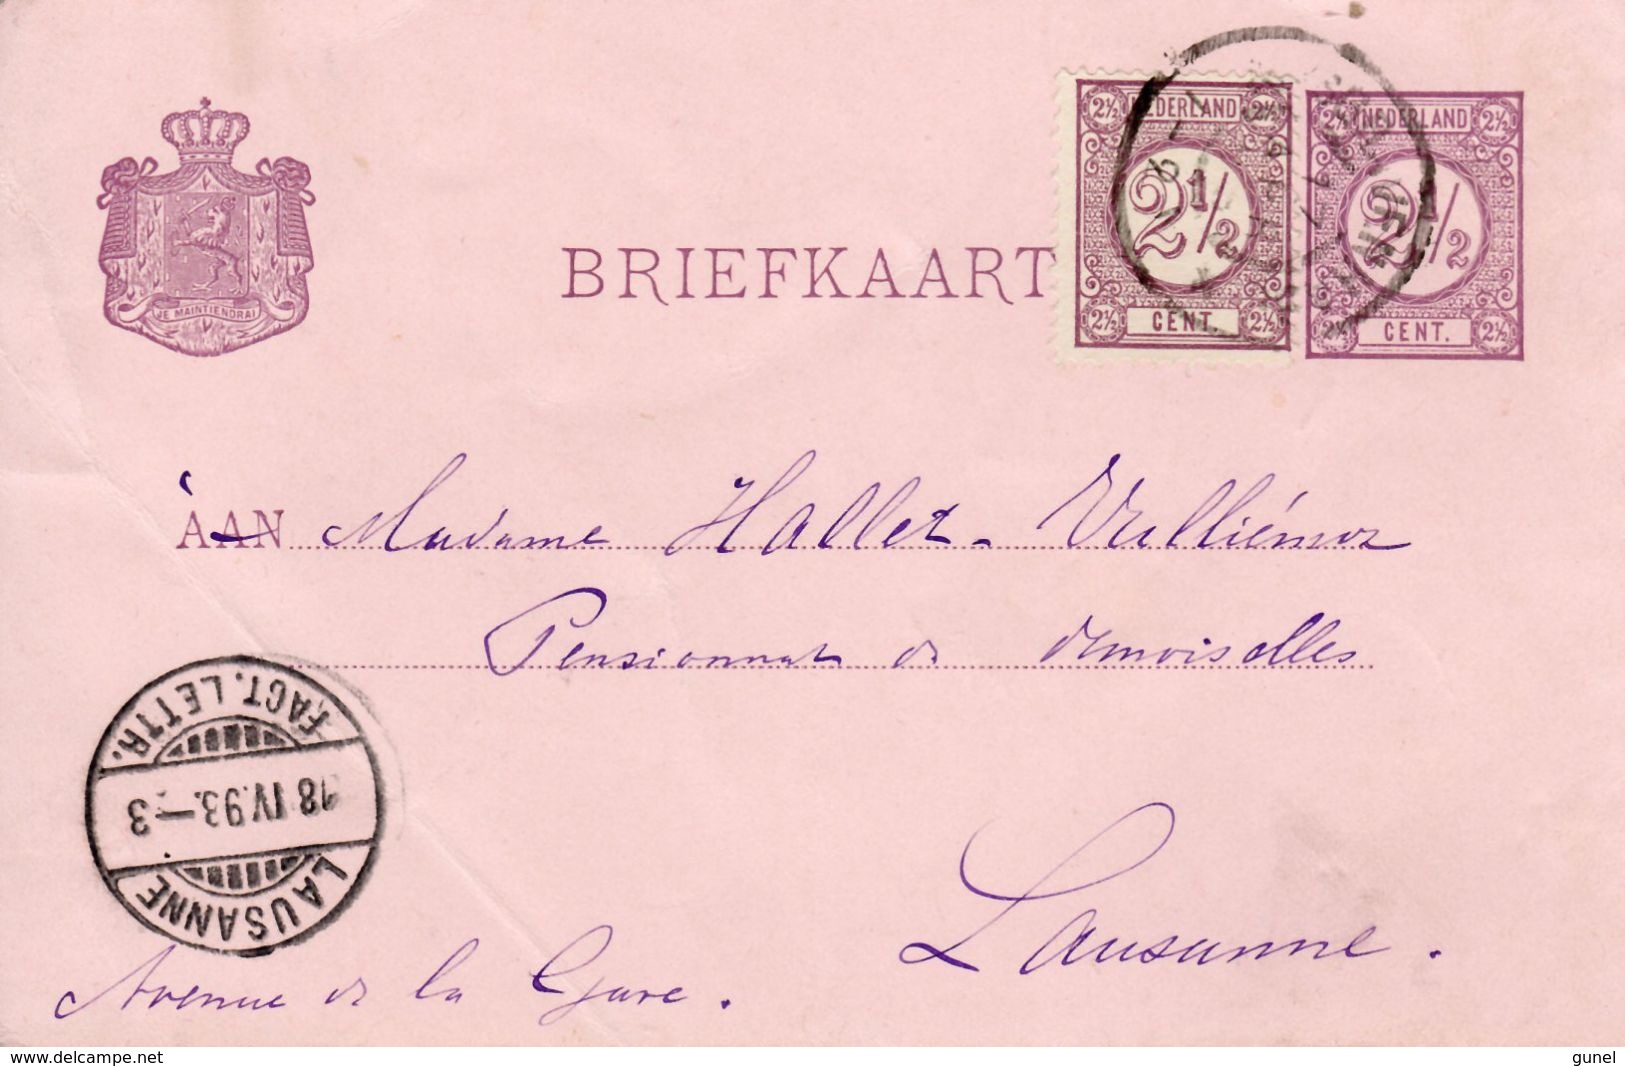 JE MAINTIENDRAI
BRIEFKAART
2½ NEDERLAND 2½
2½
2½ CENT. 2½
2½ NEDERLAND 2½
2½
2½ CENT. 2½
À AAN Madame Hallet - Vulliémoz
Pensionnat de demoiselles
LAUSANNE
18 IV.93.-3
FACT. LETTR.
Lausanne.
Avenue de la Gare.
www.delcampe.net
gunel